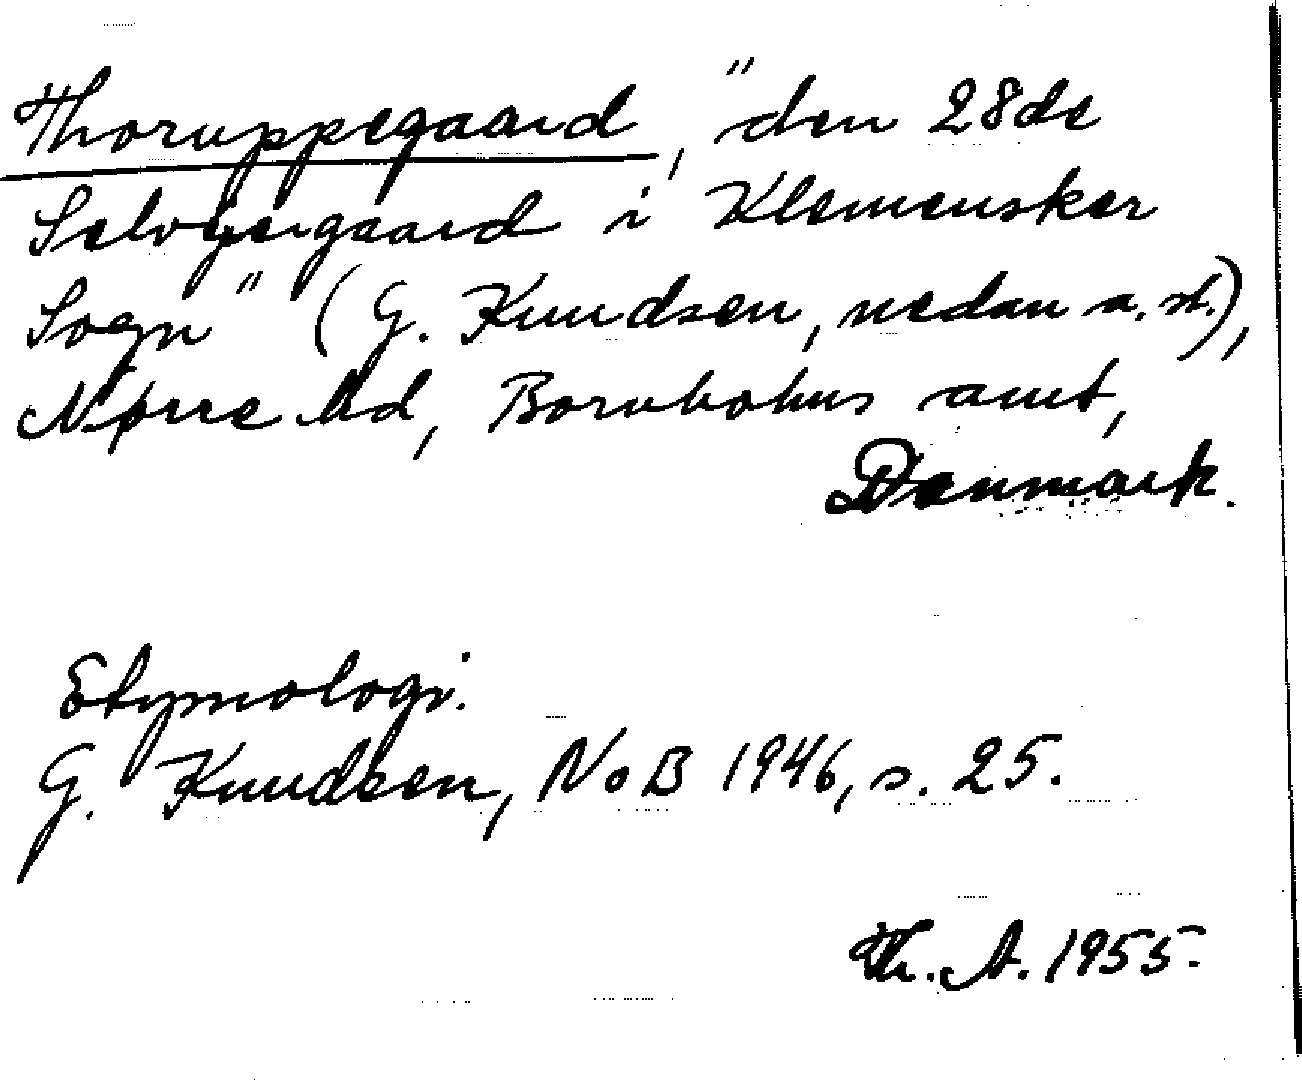 Thoruppegaard, "den 28de
Selvejergaard i Klemensker
Sogn" (G. Knudsen, nedan a. st.),
Nørre hd, Bornholms amt,
Danmark.
Etymologi.
G. Knudsen, NoB 1946, s. 25.
Th. A. 1955.